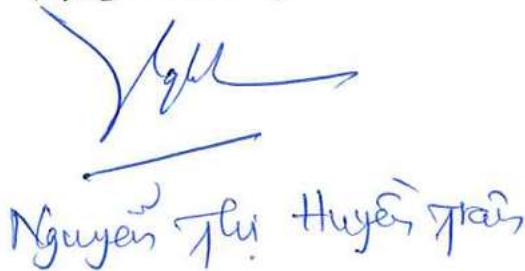 Nguyễn Thị Huyền Trân